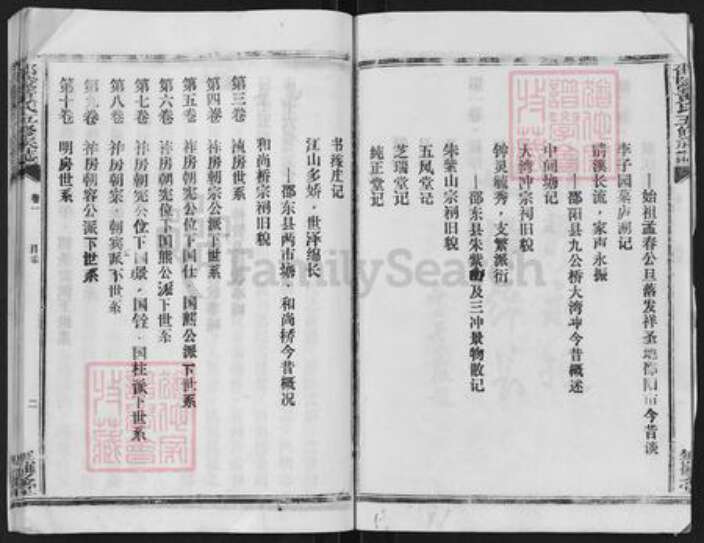 ——始祖孟春公旦落发祥圣地邵阳市今昔谈
李子园墓庐溯记
清溪长流，家声永振
——邵阳县九公桥大湾冲今昔概述
中间塘记
大湾冲宗祠旧貌
钟灵毓秀，支繁派衍
——邵东县朱紫山及三冲景物散记
朱紫山宗祠旧貌
五凤堂记
芝瑞堂记
纯正堂记
书泽庄记
江山多娇，世泽绵长
——邵东县两市塘、和尚桥今昔概况
和尚桥宗祠旧貌
第三卷
第四卷 祚房朝宗公派下世系
第五卷 祚房朝宪公位下国仕、国熊公派下世系
第六卷 祚房朝宪位下国熊公派下世系
第七卷 祚房朝宪公位下国璟、国铨、国柱派下世系
第八卷 祚房朝荣、朝宾派下世系
第九卷 祚房朝容公派下世系
第十卷 明房世系
卷一
目录
二
FamilySearch